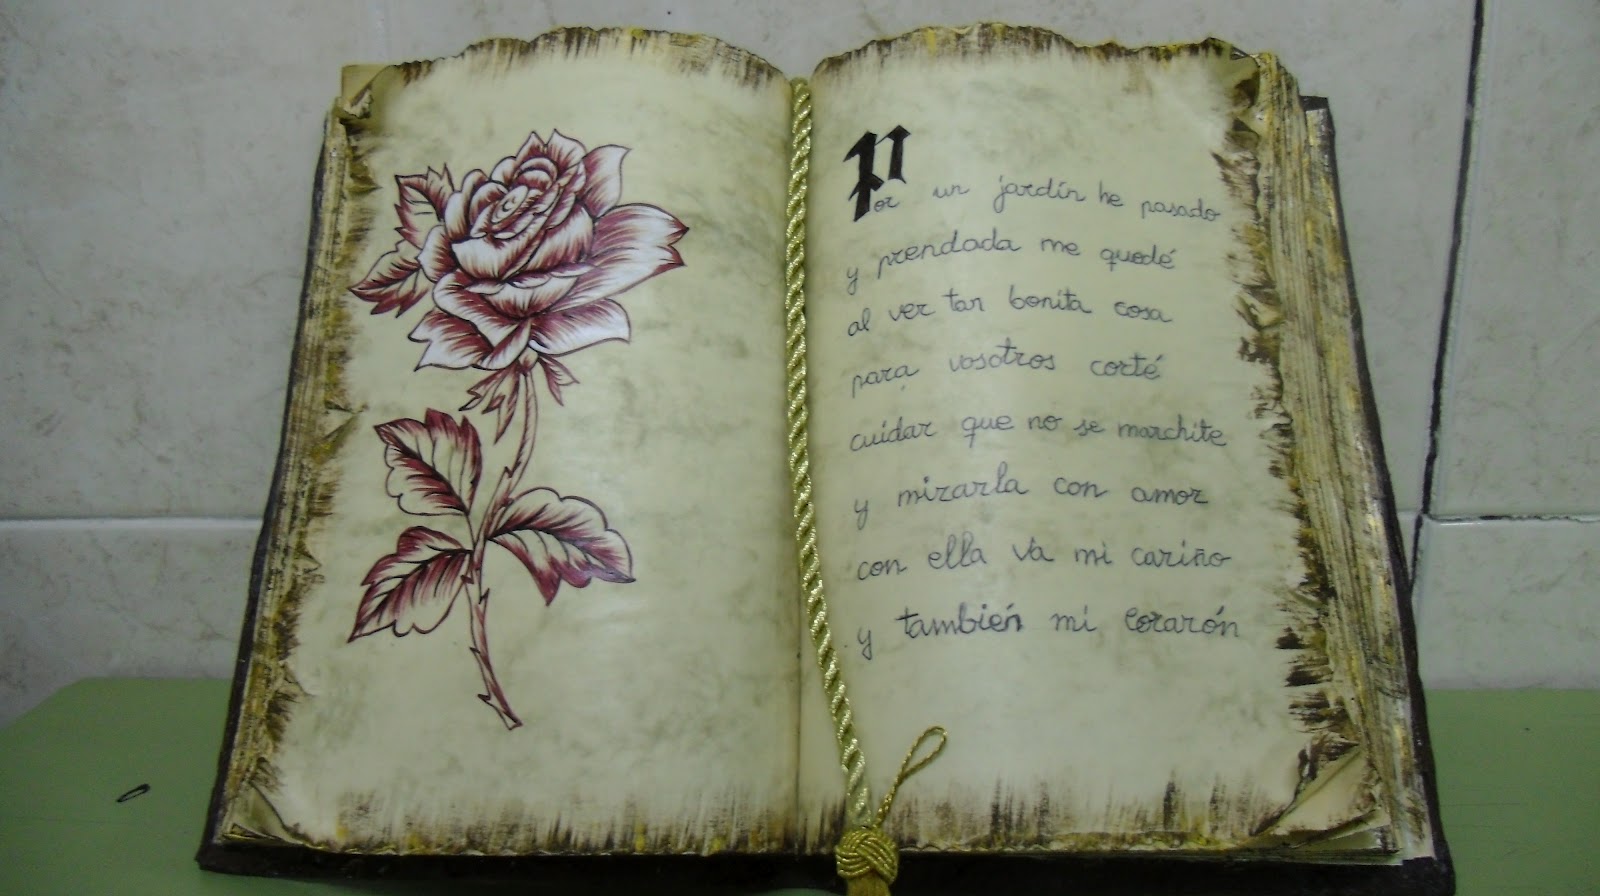 Por un jardín he pasado
y prendada me quedé
al ver tan bonita cosa
para vosotros corté
cuidar que no se marchite
y mirarla con amor
con ella va mi cariño
y también mi corazón